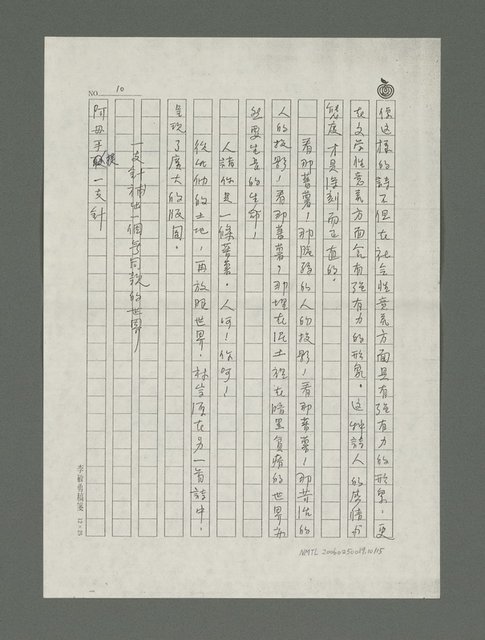 NO. 10
像這樣的詩不但在社會性意義方面具有強有力的形象，更
在文学性意義方面含有強有力的形象。這种詩人的感情与
態度才是深刻而正直的。
看那蕃薯！那臃腫的人的投影！看那蕃薯！那苦澀的
人的投影！看那蕃薯！那埋在泥土裡在暗黑貧瘠的世界於
然要生長的生命！
人講你是一條蕃薯。人呵！你呵！
從他的土地，再放眼世界。林宗源在另一首詩中，
呈現了廣大的版圖。
一支針補出一個无同款的世界
阿母手提一支針
李敏勇稿箋
NMTL 20060250019.10/15